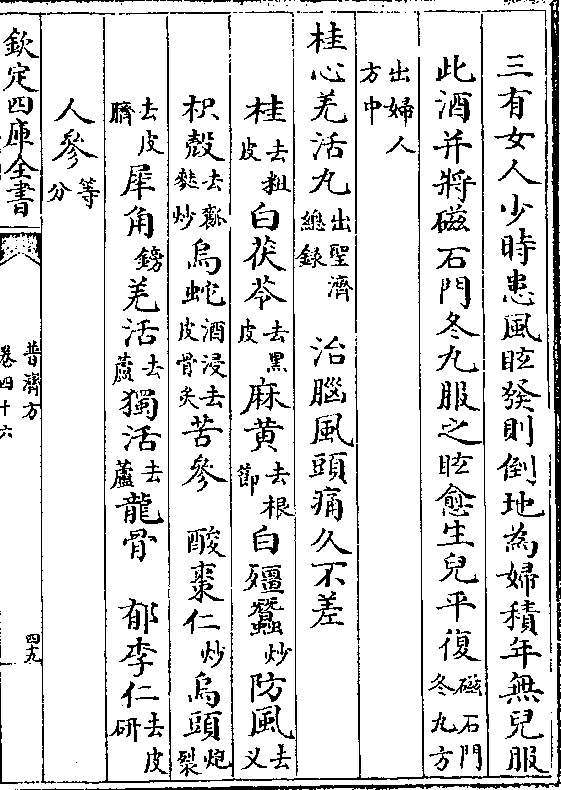 三有女人少時患風眩發則倒地為婦積年無兒服
此酒并將磁石門冬丸服之眩愈生兒平復磁石門冬丸方
出婦人方中
桂心羌活丸出聖濟總錄 治腦風頭痛久不差
桂去粗皮白茯苓去黑皮麻黄去根節白殭蠶炒防風去义
枳殻去瓤麩炒烏蛇酒浸去皮骨炙苦參 酸棗仁炒烏頭炮裂
去皮臍犀角鎊羌活去蘆獨活去蘆龍骨 郁李仁去皮研
人參等分
欽定四庫全書
普濟方
卷四十六
四九